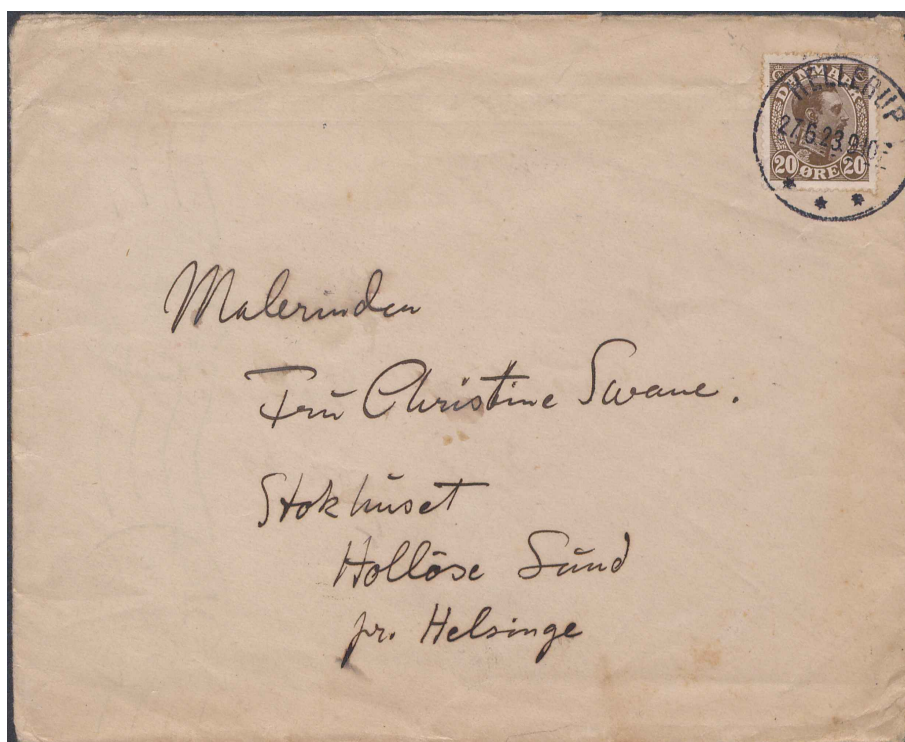 HELLERUP
27.6.23.9-10
DANMARK
20 ØRE 20
Malerinden
Fru Christine Swane.
Stokhuset
Hollöse Sund
pr. Helsinge